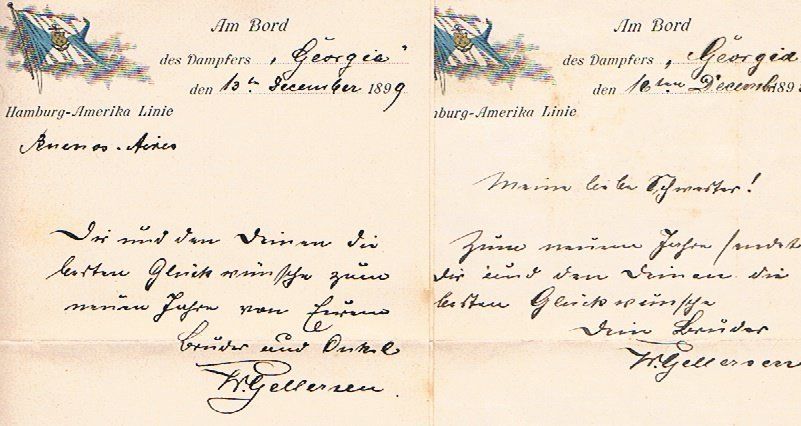 Am Bord
des Dampfers „Georgia“
den 13ten December 1899
Hamburg-Amerika Linie
Buenos-Aires
Dir und den Deinen die
besten Glückwünsche zum
neuen Jahre von Eurem
Bruder und Onkel
W. Gellersen.
Am Bord
des Dampfers „Georgia
den 16ten Decemb 189
burg-Amerika Linie
Meine liebe Schwester!
Zum neuen Jahre sendet
dir und den Deinen die
besten Glückwünsche
Dein Bruder
W. Gellersen